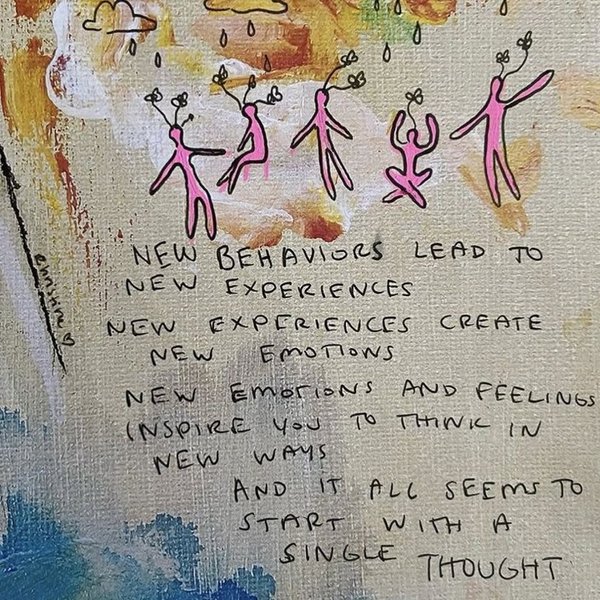 NEW BEHAVIORS LEAD TO
NEW EXPERIENCES
NEW EXPERIENCES CREATE
NEW EMOTIONS
NEW EMOTIONS AND FEELINGS
INSPIRE YOU TO THINK IN
NEW WAYS
AND IT ALL SEEMS TO
START WITH A
SINGLE THOUGHT